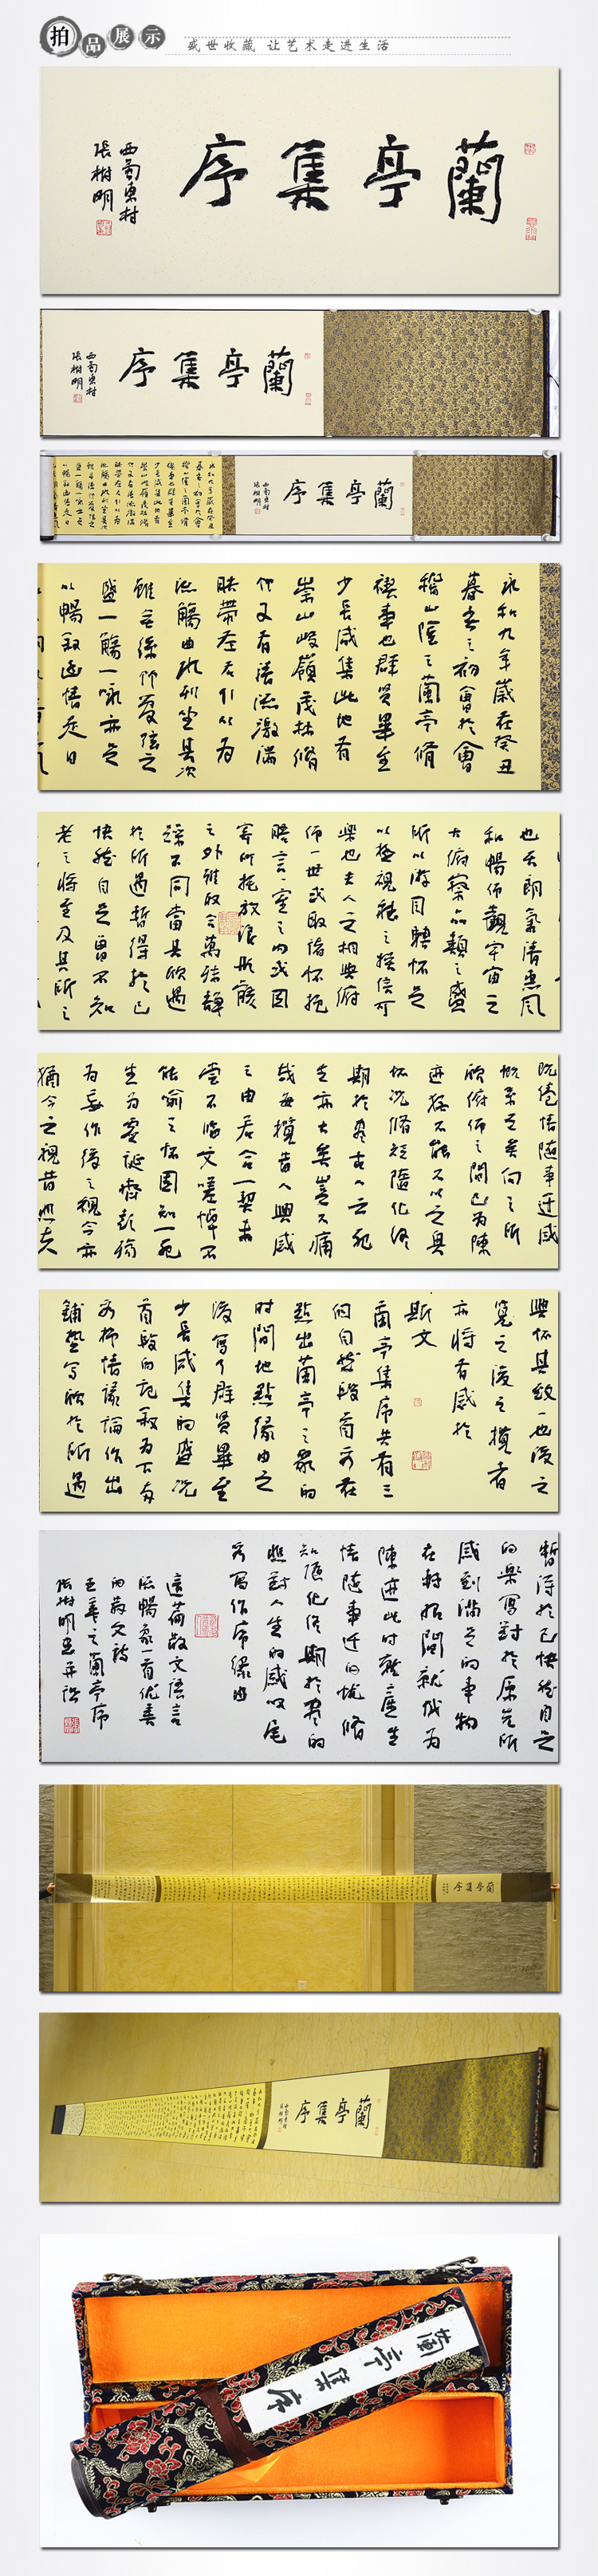 拍品展示
盛世收藏 让艺术走进生活
蘭亭集序
西蜀東村
張樹明
蘭亭集序
西蜀東村
張樹明
蘭亭集序
西蜀東村
張樹明
永和九年歲在癸丑
暮春之初會於會
稽山陰之蘭亭脩
禊事也群賢畢至
少長咸集此地有
崇山峻嶺茂林脩
竹又有清流激湍
映帶左右引以為
流觴曲水列坐其次
雖無絲竹管弦之
盛一觴一詠亦足
以暢敘幽情是日
也天朗氣清惠風
和暢仰觀宇宙之
大俯察品類之盛
所以游目騁懷足
以極視聽之娛信可
樂也夫人之相與俯
仰一世或取諸懷抱
晤言一室之內或因
寄所托放浪形骸
之外雖取舍萬殊靜
躁不同當其欣遇
於所遇暫得於己
快然自足曾不知
老之將至及其所之
既倦情隨事遷感
慨系之矣向之所
欣俯仰之間已為陳
迹猶不能不以之興
懷況脩短隨化終
期於盡古人云死
生亦大矣豈不痛
哉每攬昔人興感
之由若合一契未
嘗不臨文嗟悼不
能喻之懷固知一死
生為虛誕齊彭殤
為妄作後之視今亦
猶今之視昔悲夫
興懷其致一也後之
覽之後之攬者
亦將有感於
斯文
蘭亭集序共有三
個自然段前
點出蘭亭之聚的
時間地點緣由之
後寫了群賢畢至
少長咸集的盛況
首段的記敘為下面
抒情議論作出
鋪墊寫欣於所遇
暫得於己快然自足
的樂寫對於原先所
感到滿足的事物
在轉招間就成為
陳迹此時產生
情隨事遷的慨脩
短隨化終期於盡的
對人生的感嘆尾
寫作序緣由
這篇散文語言
流暢象一首優美
的散文詩
王羲之蘭亭序
張樹明書并記
蘭亭集序
蘭亭集序
蘭亭集序